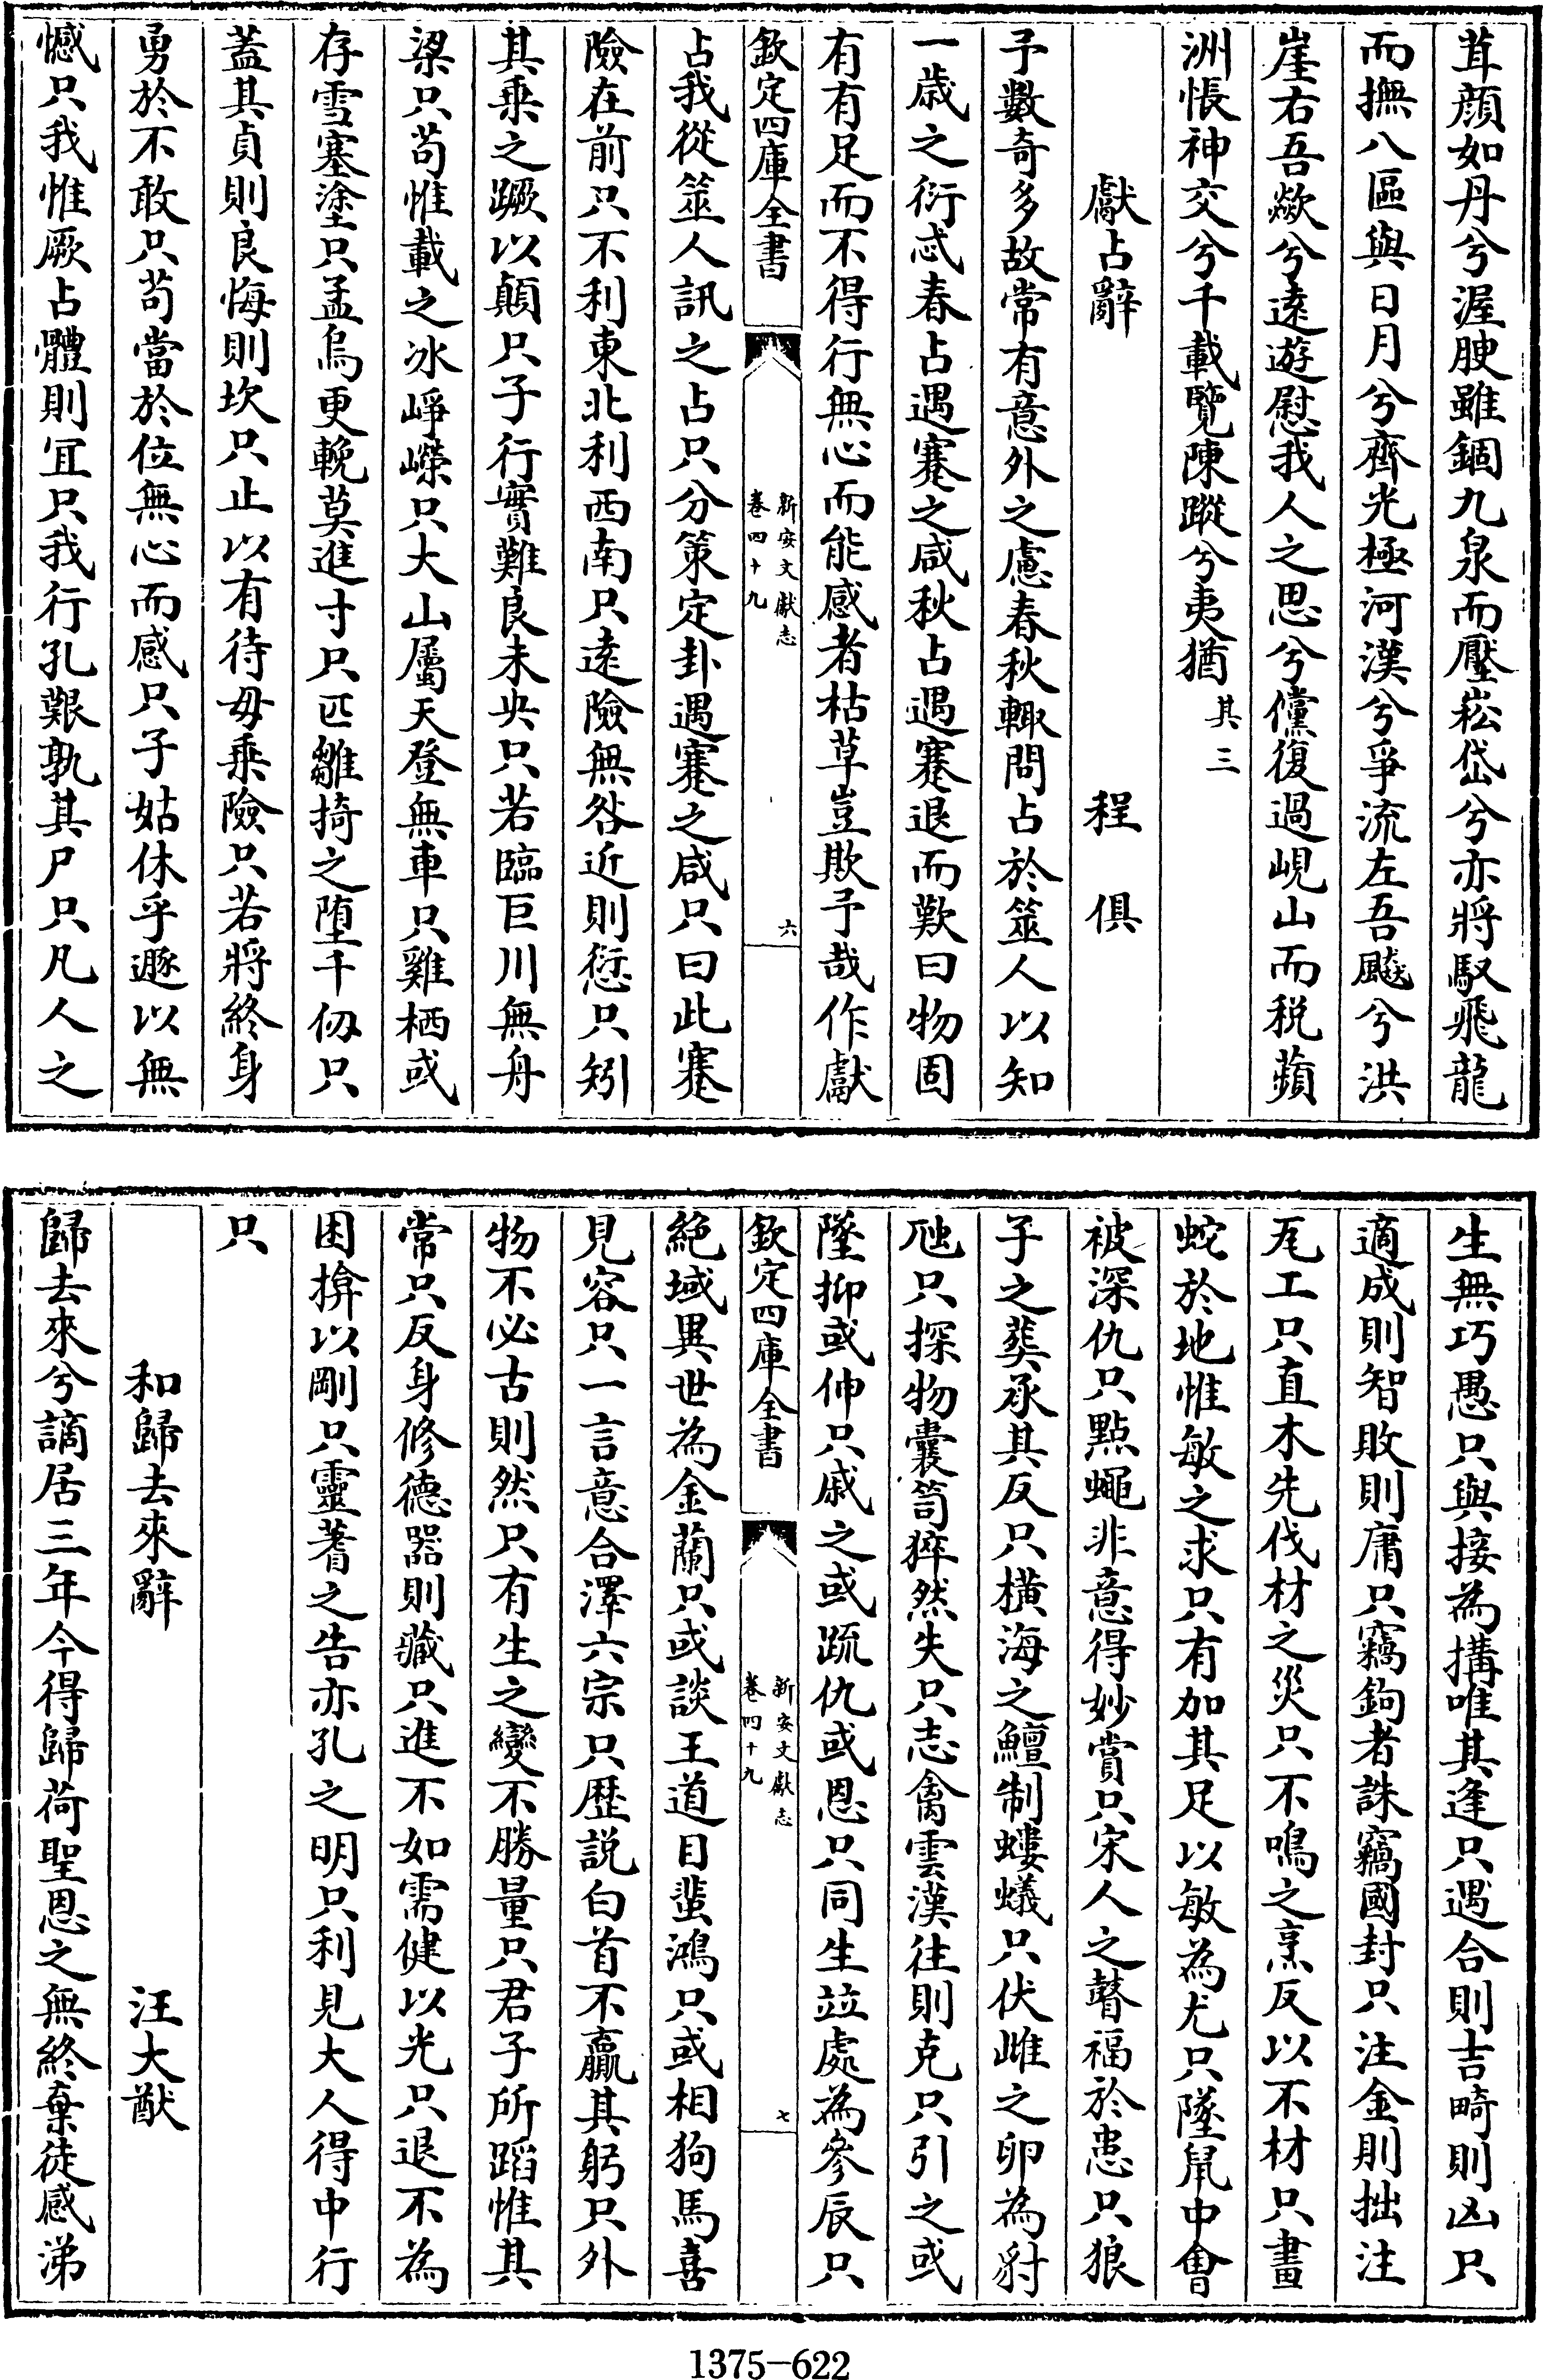 茸顔如丹兮渥腴雖錮九泉而壓崧岱兮亦將馭飛龍
而撫八區與日月兮齊光極河漢兮爭流左吾飈兮洪
崖右吾歘兮遠遊慰我人之思兮儻復過峴山而税蘋
洲悵神交兮千載覽陳蹤兮夷猶其三
獻占辭 程俱
予數奇多故常有意外之慮春秋輙問占於筮人以知
一歳之衍忒春占遇蹇之咸秋占遇蹇退而歎曰物固
有有足而不得行無心而能感者枯草豈欺予哉作獻
欽定四庫全書 新安文獻志 卷四十九 六
占我從筮人訊之占只分策定卦遇蹇之咸只曰此蹇
險在前只不利東北利西南只遠險無咎近則愆只矧
其乘之蹶以顛只子行實難良未央只若臨巨川無舟
梁只苟惟載之冰崢嶸只大山屬天登無車只雞栖或
存雪塞塗只孟烏更輓莫進寸只匹雛掎之墮千仞只
蓋其貞則良悔則坎只止以有待毋乘險只若將終身
勇於不敢只苟當於位無心而感只子姑休乎遯以無
憾只我惟厥占體則宜只我行孔艱孰其尸只凡人之
生無巧愚只與接為搆唯其逢只遇合則吉畸則凶只
適成則智敗則庸只竊鉤者誅竊國封只注金則拙注
瓦工只直木先伐材之災只不鳴之烹反以不材只畫
蛇於地惟敏之求只有加其足以敏為尤只墜鼠中會
被深仇只點蠅非意得妙賞只宋人之瞽福於患只狼
子之葬承其反只橫海之鱣制螻蟻只伏雌之卵為豺
虺只探物囊笥猝然失只志禽雲漢往則克只引之或
墜抑或伸只戚之或疏仇或恩只同生竝處為參辰只
欽定四庫全書 新安文獻志 卷四十九 七
絶域異世為金蘭只或談王道目蜚鴻只或相狗馬喜
見容只一言意合澤六宗只歷説白首不贏其躬只外
物不必古則然只有生之變不勝量只君子所蹈惟其
常只反身修德器則藏只進不如需健以光只退不為
困揜以剛只靈蓍之告亦孔之明只利見大人得中行
只
和歸去來辭 汪大猷
歸去來兮謫居三年今得歸荷聖恩之無終棄徒感涕
1375-622